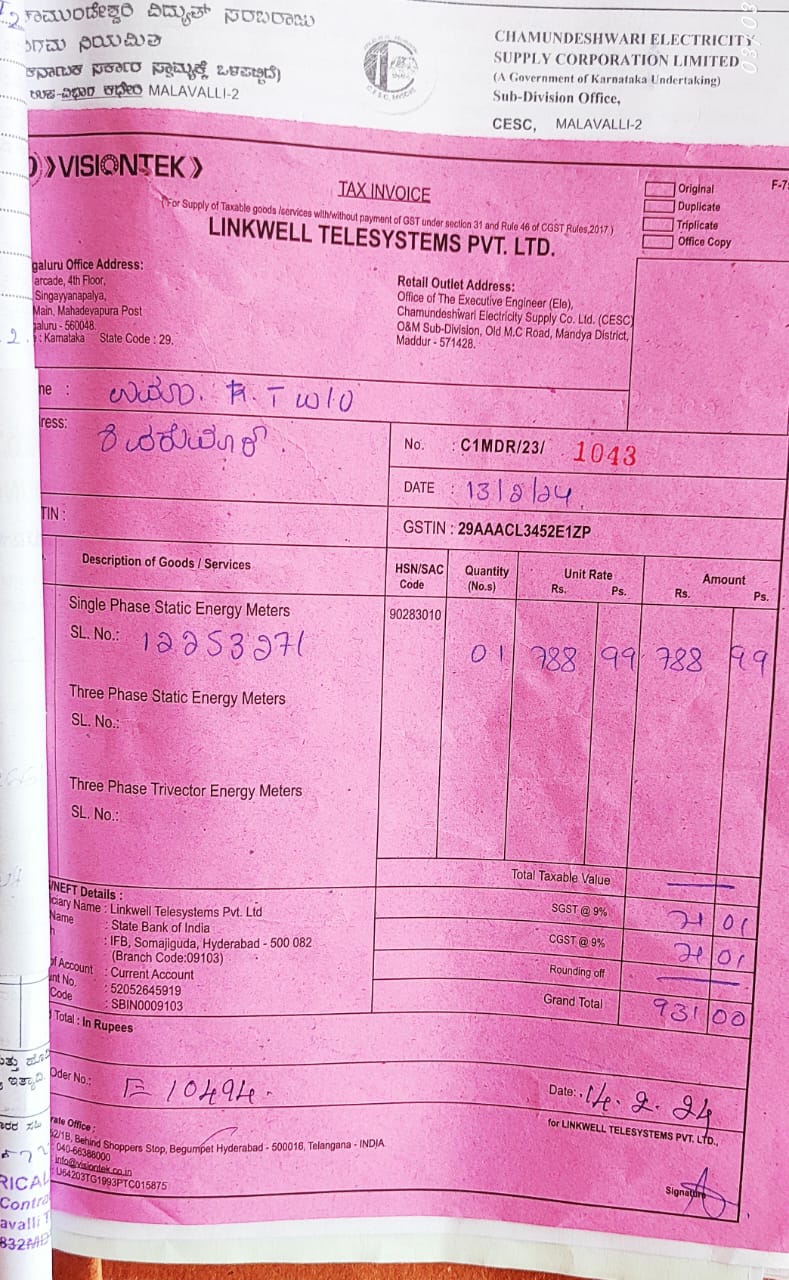 ಕಾಮುಂಡೇಶ್ವರಿ ವಿದ್ಯುತ್ ಸರಬರಾಜು
ನಿಯಮಿತ
ಕರ್ನಾಟಕ ಸರ್ಕಾರ ಸ್ವಾಮ್ಯಕ್ಕೆ ಒಳಪಟ್ಟಿದೆ)
ಉಪ-ವಿಭಾಗ ಕಛೇರಿ MALAVALLI-2
CHAMUNDESHWARI ELECTRICITY
SUPPLY CORPORATION LIMITED
(A Government of Karnataka Undertaking)
Sub-Division Office,
CESC, MALAVALLI-2
VISIONTEK
TAX INVOICE
(For Supply of Taxable goods /services with/without payment of GST under section 31 and Rule 46 of CGST Rules,2017)
LINKWELL TELESYSTEMS PVT. LTD.
Original
Duplicate
Triplicate
Office Copy
F-7
galuru Office Address:
arcade, 4th Floor,
Singayyanapalya,
Main, Mahadevapura Post
galuru - 560048.
: Karnataka State Code : 29.
Retail Outlet Address:
Office of The Executive Engineer (Ele),
Chamundeshwari Electricity Supply Co. Ltd. (CESC)
O&M Sub-Division, Old M.C Road, Mandya District,
Maddur - 571428.
me :
W/O
ress:
No. : C1MDR/23/ 1043
DATE : 13/2/24
TIN :
GSTIN : 29AAACL3452E1ZP
Description of Goods / Services
HSN/SAC Code
Quantity (No.s)
Unit Rate Rs. Ps.
Amount Rs. Ps.
Single Phase Static Energy Meters 90283010
SL. No.: 12253271 01 788 99 788 99
Three Phase Static Energy Meters
SL. No.:
Three Phase Trivector Energy Meters
SL. No.:
Total Taxable Value
SGST @ 9% 71 01
CGST @ 9% 71 01
Rounding off
Grand Total 931 00
/NEFT Details :
ciary Name : Linkwell Telesystems Pvt. Ltd
Name : State Bank of India
: IFB, Somajiguda, Hyderabad - 500 082
(Branch Code:09103)
of Account : Current Account
nt No. : 52052645919
Code : SBIN0009103
Total : In Rupees
Oder No.: E 10494.
Date: 14.2.24
for LINKWELL TELESYSTEMS PVT. LTD.,
rate Office :
2/1B, Behind Shoppers Stop, Begumpet Hyderabad - 500016, Telangana - INDIA
040-66388000
info@visiontek.co.in
: U64203TG1993PTC015875
Signature
RICAL
Contra
avalli T